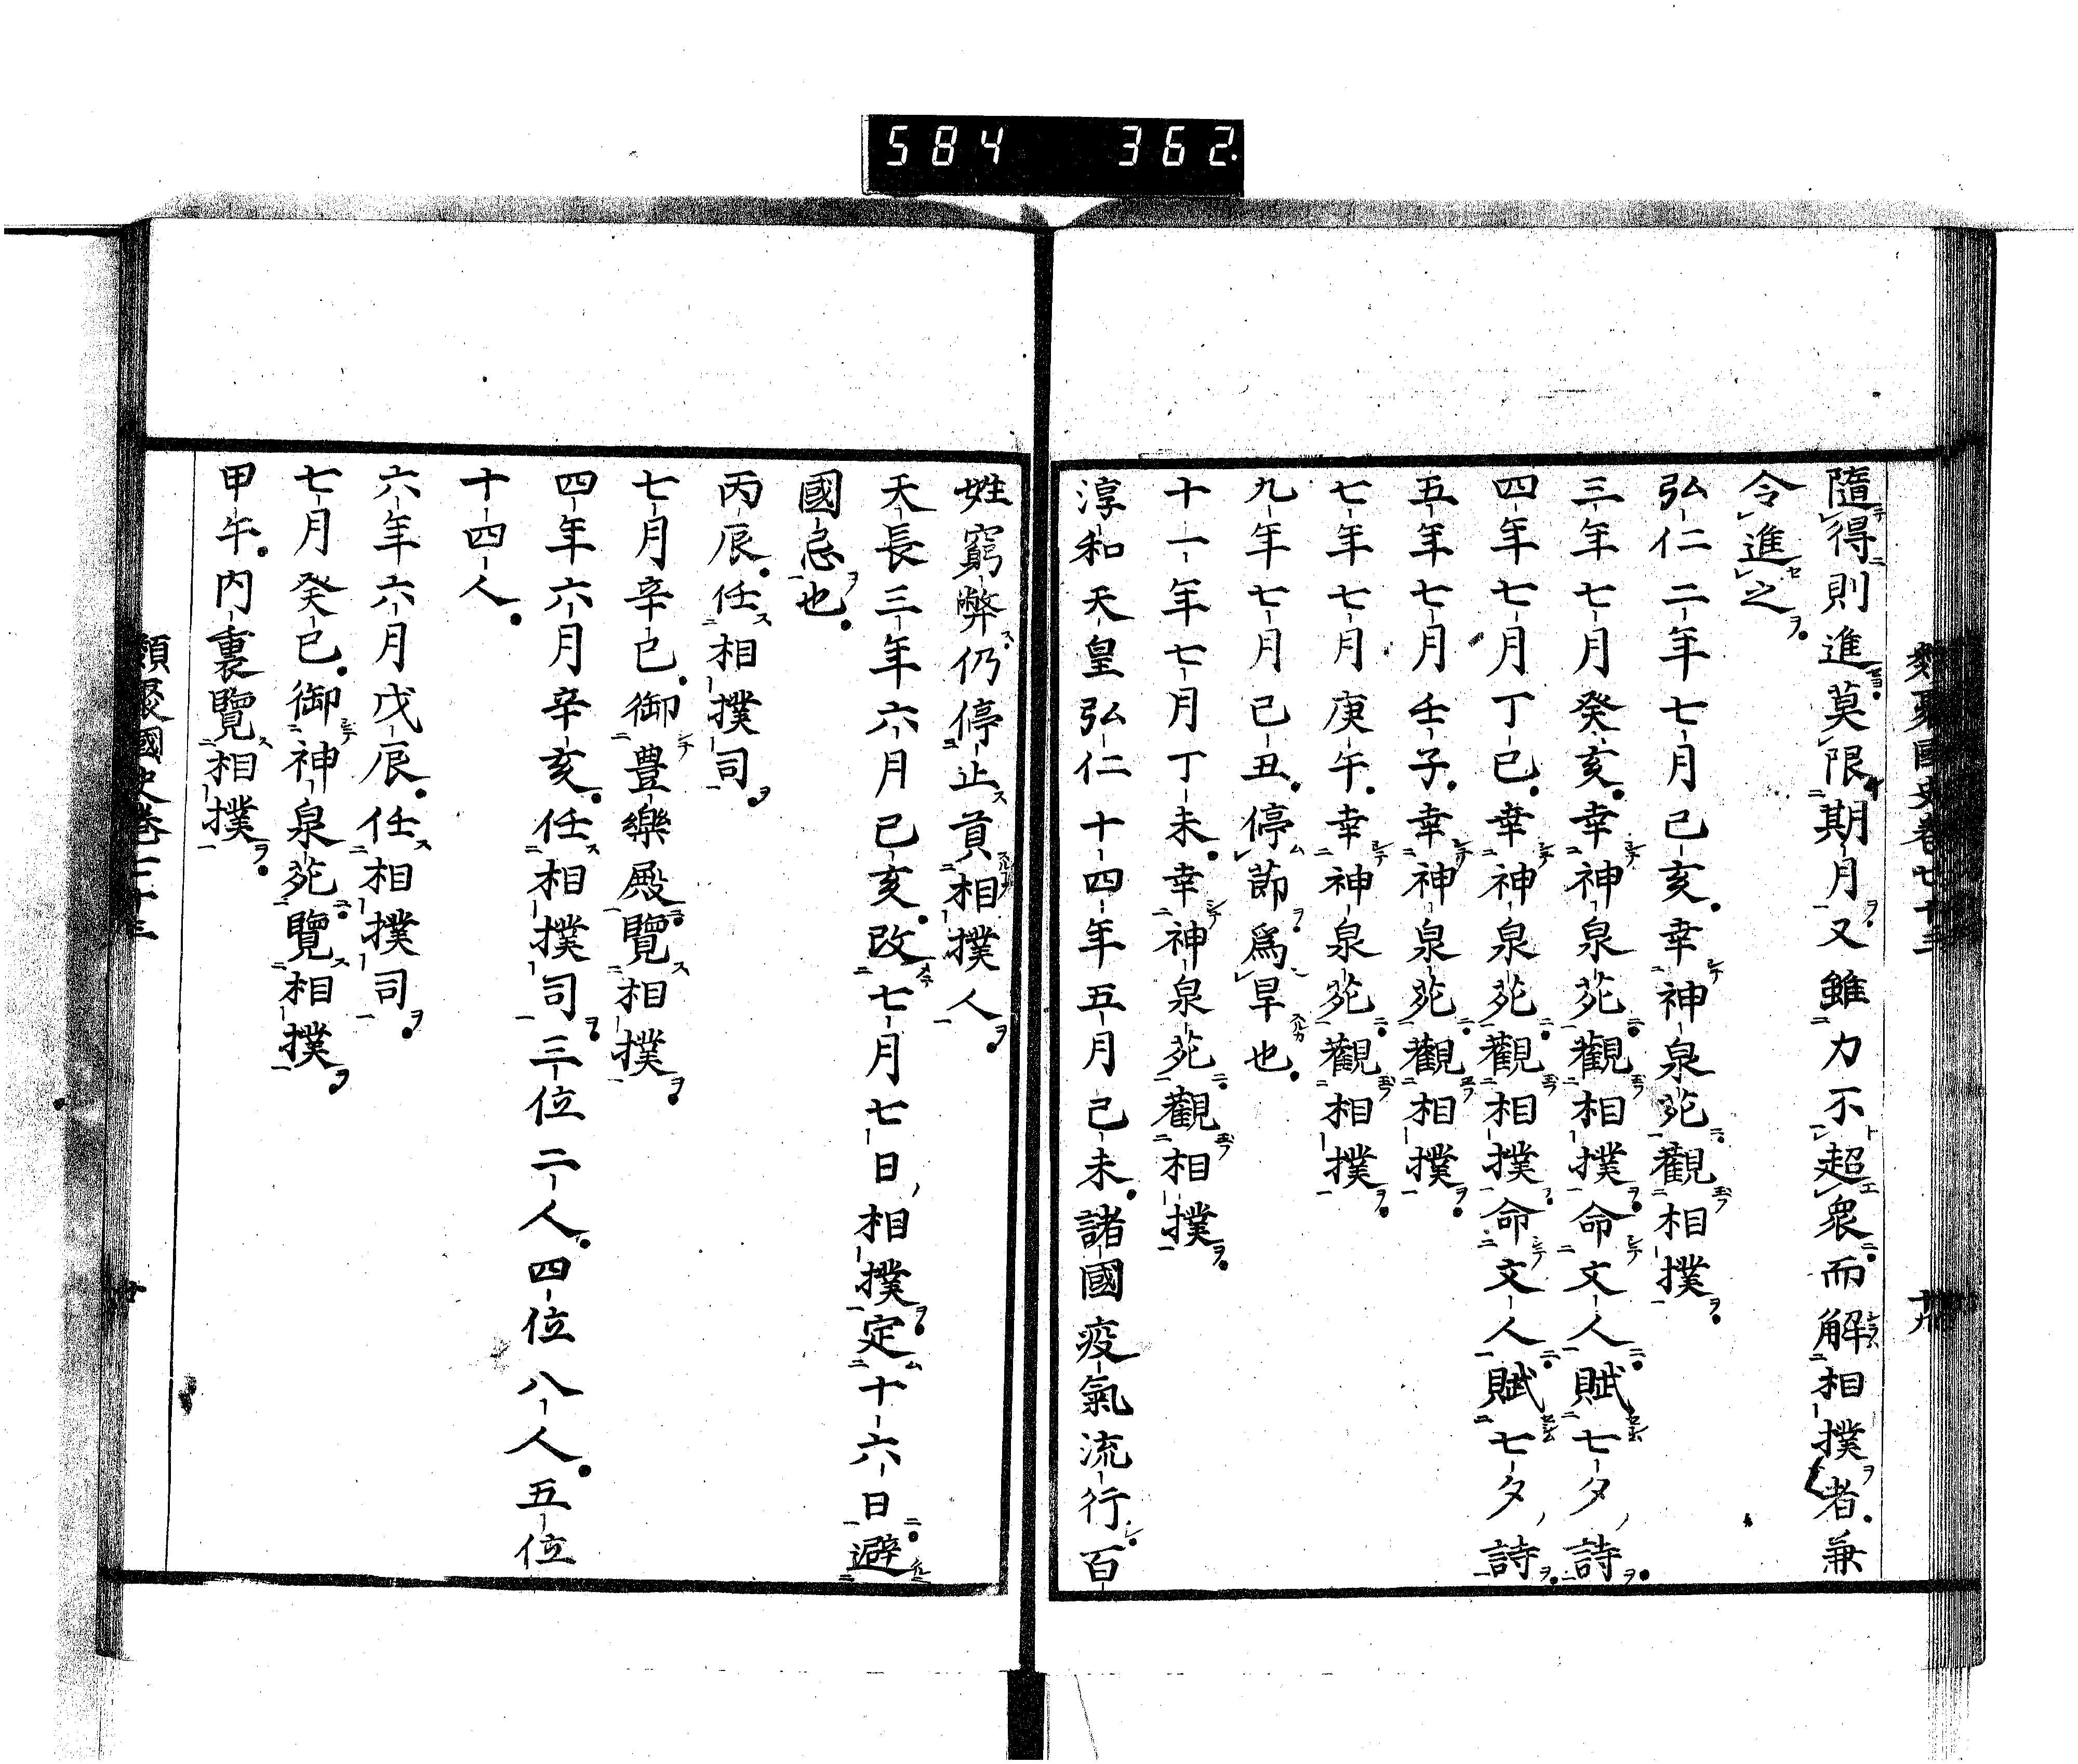 584 362
隨得則進莫限期月又雖力不超衆而解相撲者兼
令進之
弘仁二年七月己亥幸神泉苑觀相撲
三年七月癸亥幸神泉苑觀相撲命文人賦七夕詩
四年七月丁巳幸神泉苑觀相撲命文人賦七夕詩
五年七月壬子幸神泉苑觀相撲
七年七月庚午幸神泉苑觀相撲
九年七月己丑停節爲旱也
十一年七月丁未幸神泉苑觀相撲
淳和天皇弘仁十四年五月己未諸國疫氣流行百
姓窮弊仍停止貢相撲人
天長三年六月己亥改七月七日相撲定十六日避
國忌也
丙辰任相撲司
七月辛巳御豊樂殿覽相撲
四年六月辛亥任相撲司三位二人四位八人五位
十四人
六年六月戊辰任相撲司
七月癸巳御神泉苑覽相撲
甲午內裏覽相撲
類聚國史卷七十三